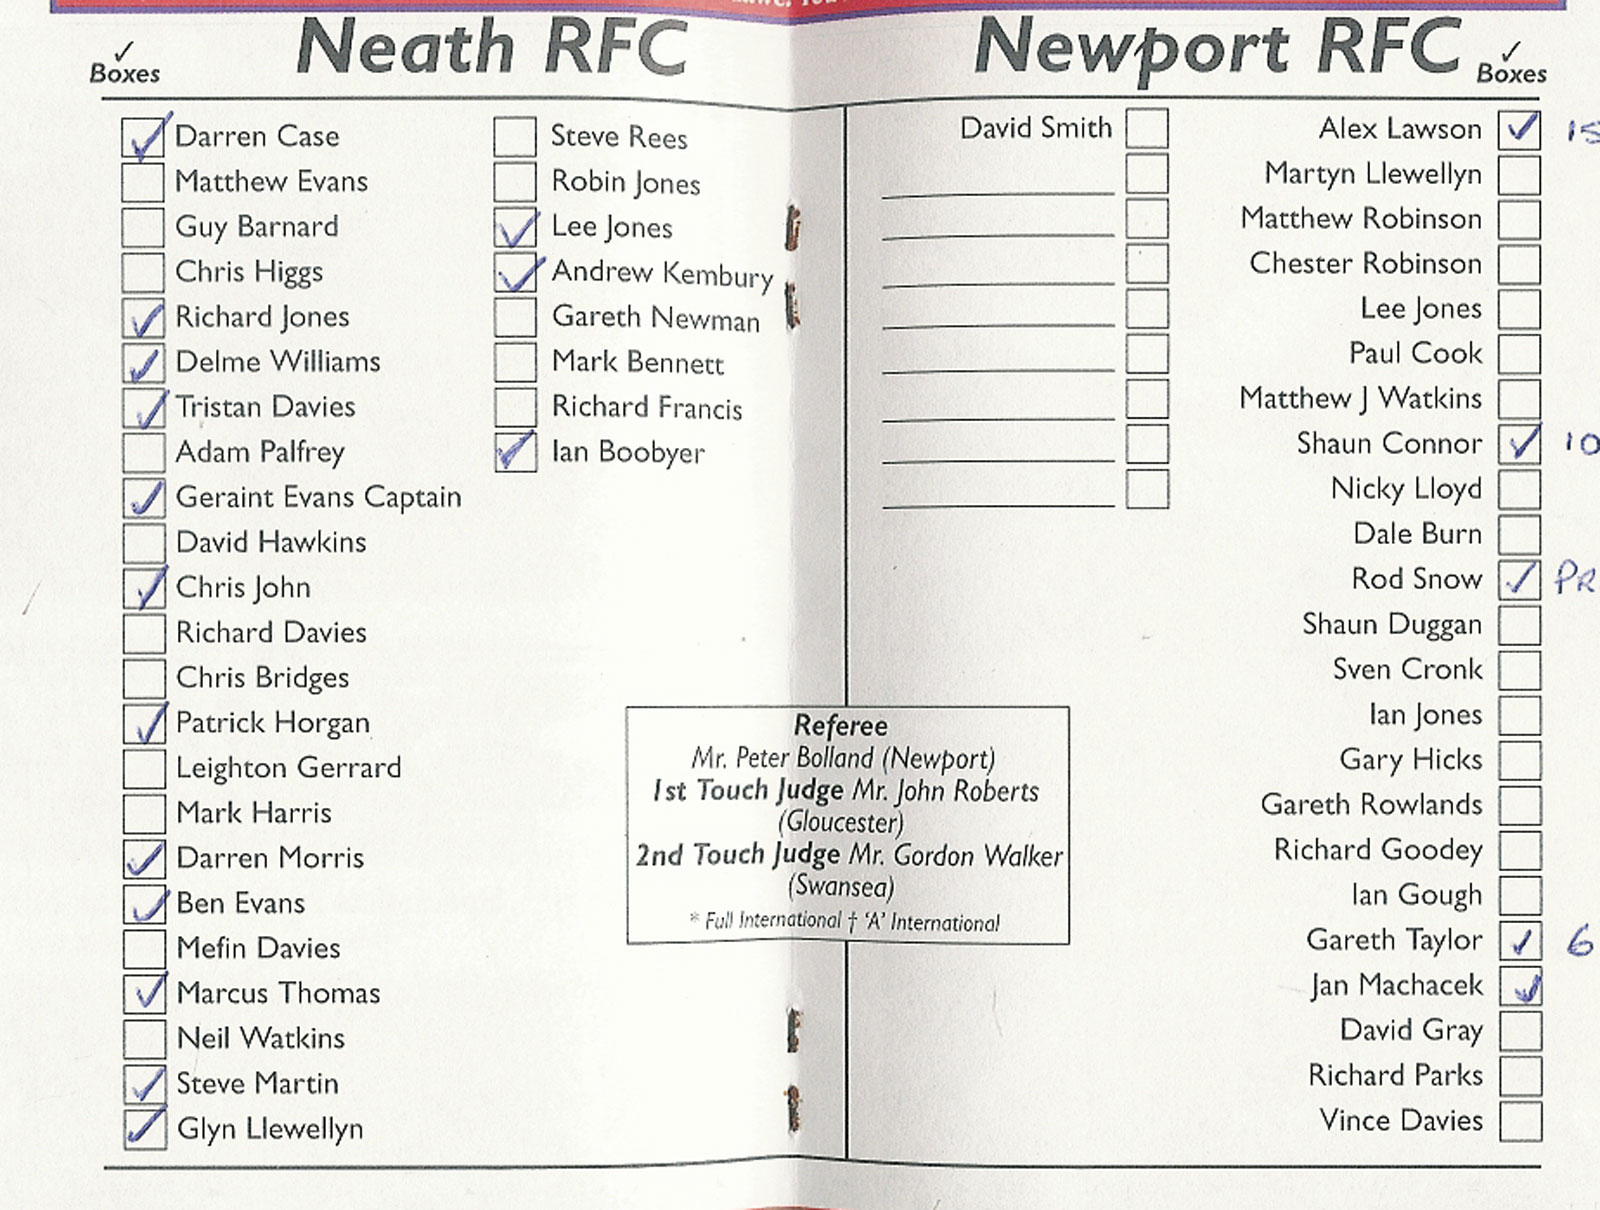 Neath RFC
✓
Boxes
Darren Case
Matthew Evans
Guy Barnard
Chris Higgs
Richard Jones
Delme Williams
Tristan Davies
Adam Palfrey
Geraint Evans Captain
David Hawkins
Chris John
Richard Davies
Chris Bridges
Patrick Horgan
Leighton Gerrard
Mark Harris
Darren Morris
Ben Evans
Mefin Davies
Marcus Thomas
Neil Watkins
Steve Martin
Glyn Llewellyn
Steve Rees
Robin Jones
Lee Jones
Andrew Kembury
Gareth Newman
Mark Bennett
Richard Francis
Ian Boobyer
Newport RFC
✓
Boxes
David Smith
Alex Lawson 15
Martyn Llewellyn
Matthew Robinson
Chester Robinson
Lee Jones
Paul Cook
Matthew J Watkins
Shaun Connor 10
Nicky Lloyd
Dale Burn
Rod Snow PR
Shaun Duggan
Sven Cronk
Ian Jones
Gary Hicks
Gareth Rowlands
Richard Goodey
Ian Gough
Gareth Taylor 6
Jan Machacek
David Gray
Richard Parks
Vince Davies
Referee
Mr. Peter Bolland (Newport)
1st Touch Judge Mr. John Roberts
(Gloucester)
2nd Touch Judge Mr. Gordon Walker
(Swansea)
* Full International † 'A' International